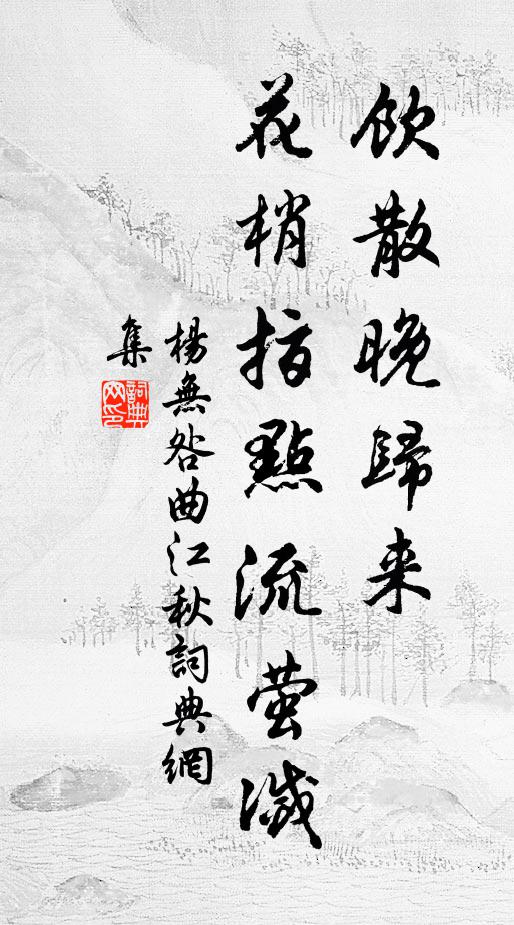 飲散晚歸来
花梢指點流萤滅
楊無咎曲江秋詞典網
集
詞典
网印